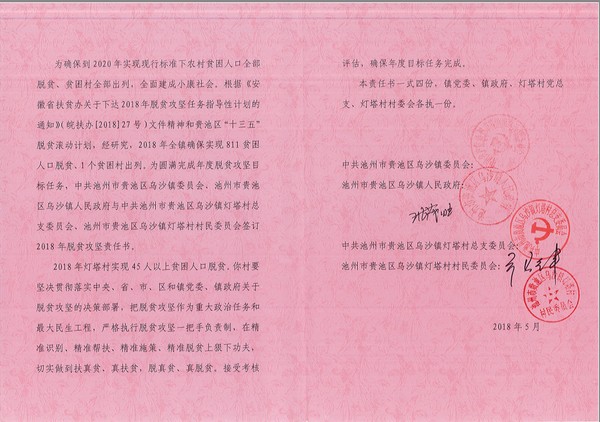 为确保到2020年实现现行标准下农村贫困人口全部
脱贫、贫困村全部出列，全面建成小康社会。根据《安
徽省扶贫办关于下达2018年脱贫攻坚任务指导性计划的
通知》（皖扶办[2018]27号）文件精神和贵池区“十三五”
脱贫滚动计划，经研究，2018年全镇确保实现811贫困
人口脱贫、1个贫困村出列。为圆满完成年度脱贫攻坚目
标任务，中共池州市贵池区乌沙镇委员会、池州市贵池
区乌沙镇人民政府与中共池州市贵池区乌沙镇灯塔村总
支委员会、池州市贵池区乌沙镇灯塔村村民委员会签订
2018年脱贫攻坚责任书。
2018年灯塔村实现45人以上贫困人口脱贫。你村要
坚决贯彻落实中央、省、市、区和镇党委、镇政府关于
脱贫攻坚的决策部署，把脱贫攻坚作为重大政治任务和
最大民生工程，严格执行脱贫攻坚一把手负责制，在精
准识别、精准帮扶、精准施策、精准脱贫上狠下功夫，
切实做到扶真贫、真扶贫，脱真贫、真脱贫。接受考核
评估，确保年度目标任务完成。
本责任书一式四份，镇党委、镇政府、灯塔村党总
支、灯塔村村委会各执一份。
中共池州市贵池区乌沙镇委员会：
池州市贵池区乌沙镇人民政府：
中共池州市贵池区乌沙镇灯塔村总支委员会：
池州市贵池区乌沙镇灯塔村村民委员会：
村民委员会
2018年5月